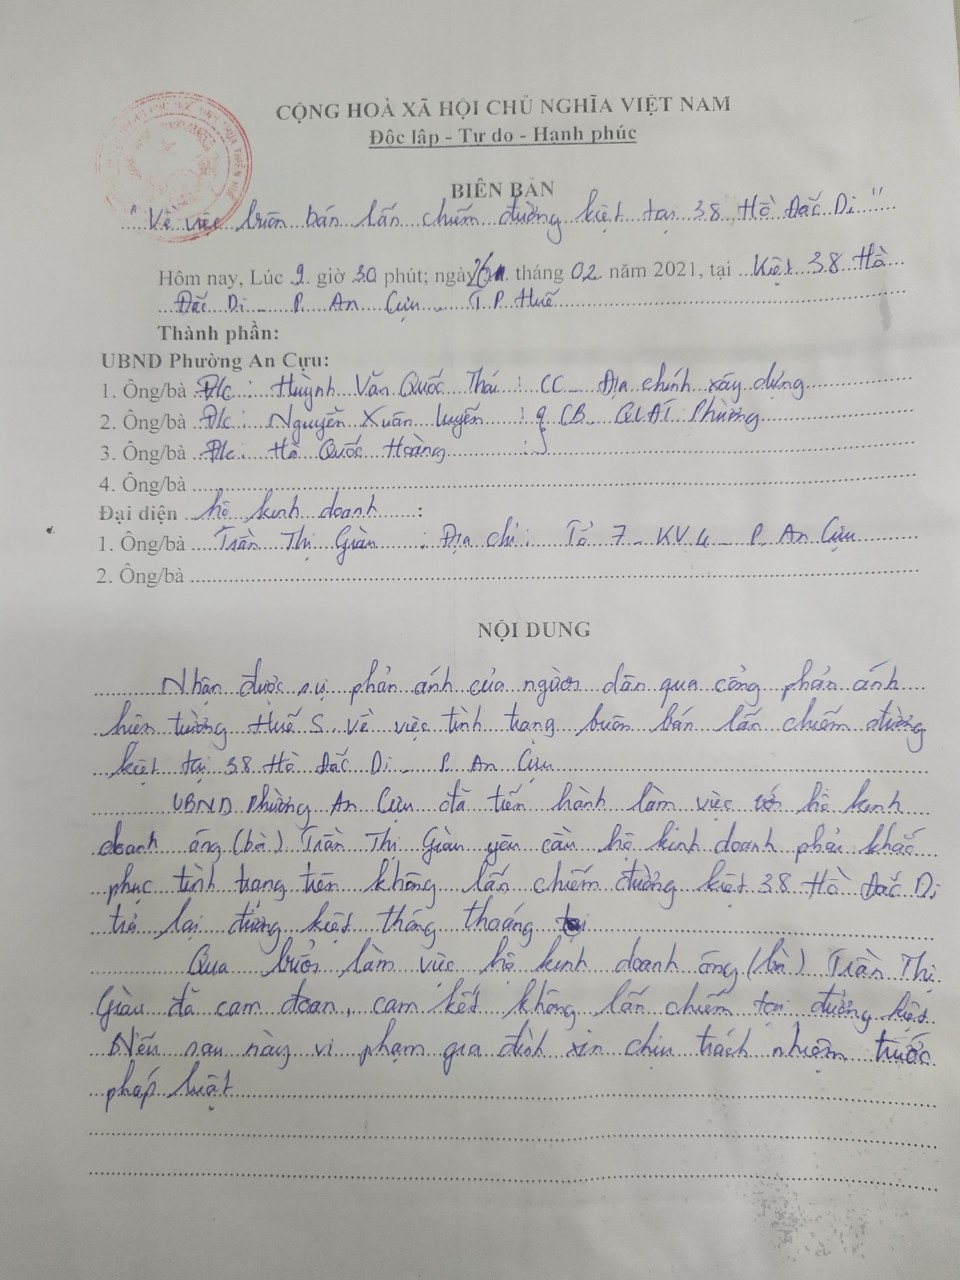 CỘNG HOÀ XÃ HỘI CHỦ NGHĨA VIỆT NAM
Độc lập - Tự do - Hạnh phúc
BIÊN BẢN
"Về việc buôn bán lấn chiếm đường kiệt tại 38 Hồ Đắc Di"
Hôm nay, Lúc 9 giờ 30 phút; ngày 26 tháng 02 năm 2021, tại Kiệt 38 Hồ
Đắc Di - P. An Cựu - T.P Huế
Thành phần:
UBND Phường An Cựu:
1. Ông/bà Đ/c: Huỳnh Văn Quốc Thái: CC - Địa chính xây dựng
2. Ông/bà Đ/c: Nguyễn Xuân Luyến : CB - QLĐT Phường
3. Ông/bà Đ/c: Hồ Quốc Hoàng :
4. Ông/bà
Đại diện hộ kinh doanh :
1. Ông/bà Trần Thị Giàu : Địa chỉ: Tổ 7 - KV4 - P. An Cựu
2. Ông/bà
NỘI DUNG
Nhận được sự phản ánh của người dân qua cổng phản ánh
hiện tượng Huế S về việc tình trạng buôn bán lấn chiếm đường
kiệt tại 38 Hồ Đắc Di - P. An Cựu
UBND Phường An Cựu đã tiến hành làm việc với hộ kinh
doanh ông (bà) Trần Thị Giàu yêu cầu hộ kinh doanh phải khắc
phục tình trạng trên không lấn chiếm đường kiệt 38 Hồ Đắc Di
trả lại đường kiệt thông thoáng
Qua buổi làm việc hộ kinh doanh ông (bà) Trần Thị
Giàu đã cam đoan, cam kết không lấn chiếm tại đường kiệt.
Nếu sau này vi phạm gia đình xin chịu trách nhiệm trước
pháp luật